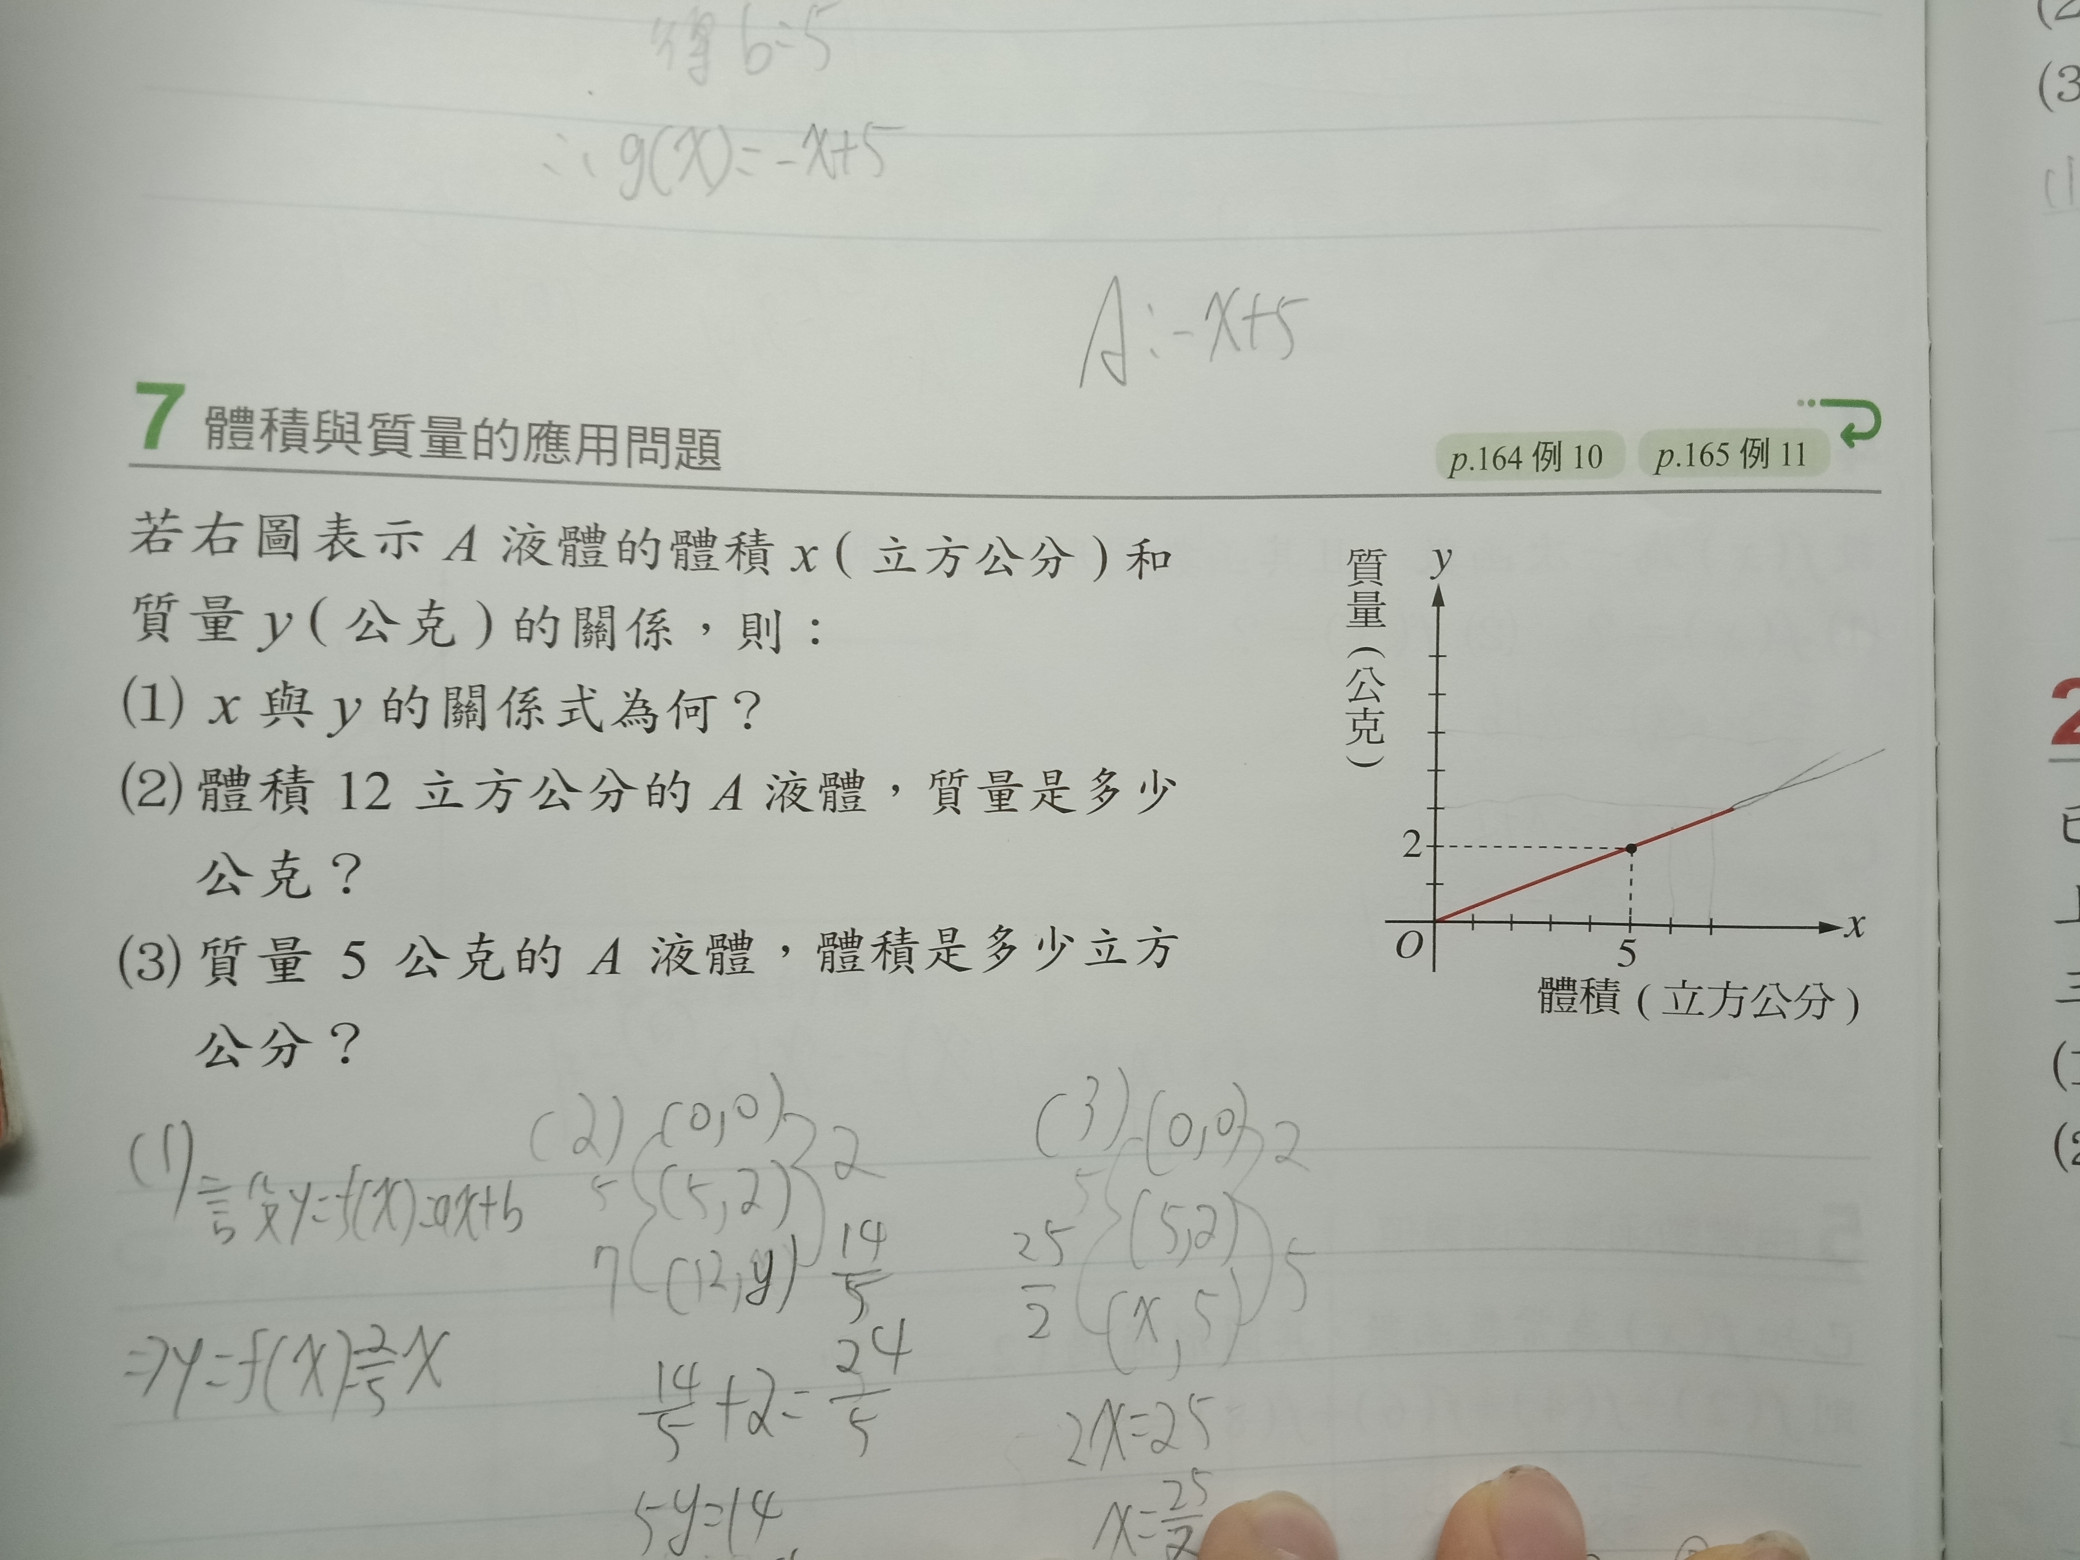 得 b=5
∴ g(x)=-x+5
A:-x+5
7 體積與質量的應用問題
p.164 例 10 p.165 例 11
若右圖表示 A 液體的體積 x ( 立方公分 ) 和
質量 y ( 公克 ) 的關係，則：
(1) x 與 y 的關係式為何？
(2) 體積 12 立方公分的 A 液體，質量是多少
公克？
(3) 質量 5 公克的 A 液體，體積是多少立方
公分？
質量(公克)
y
2
O
5
x
體積 ( 立方公分 )
(1) 設 y=f(x)=ax+b
⇒y=f(x)=2/5 x
(2) (0,0) 2
5 (5,2)
7 (12,y) 14/5
14/5+2=24/5
5y=14
(3) (0,0) 2
5 (5,2)
25/2 (x,5) 5
2x=25
x=25/2
(3
2
(2